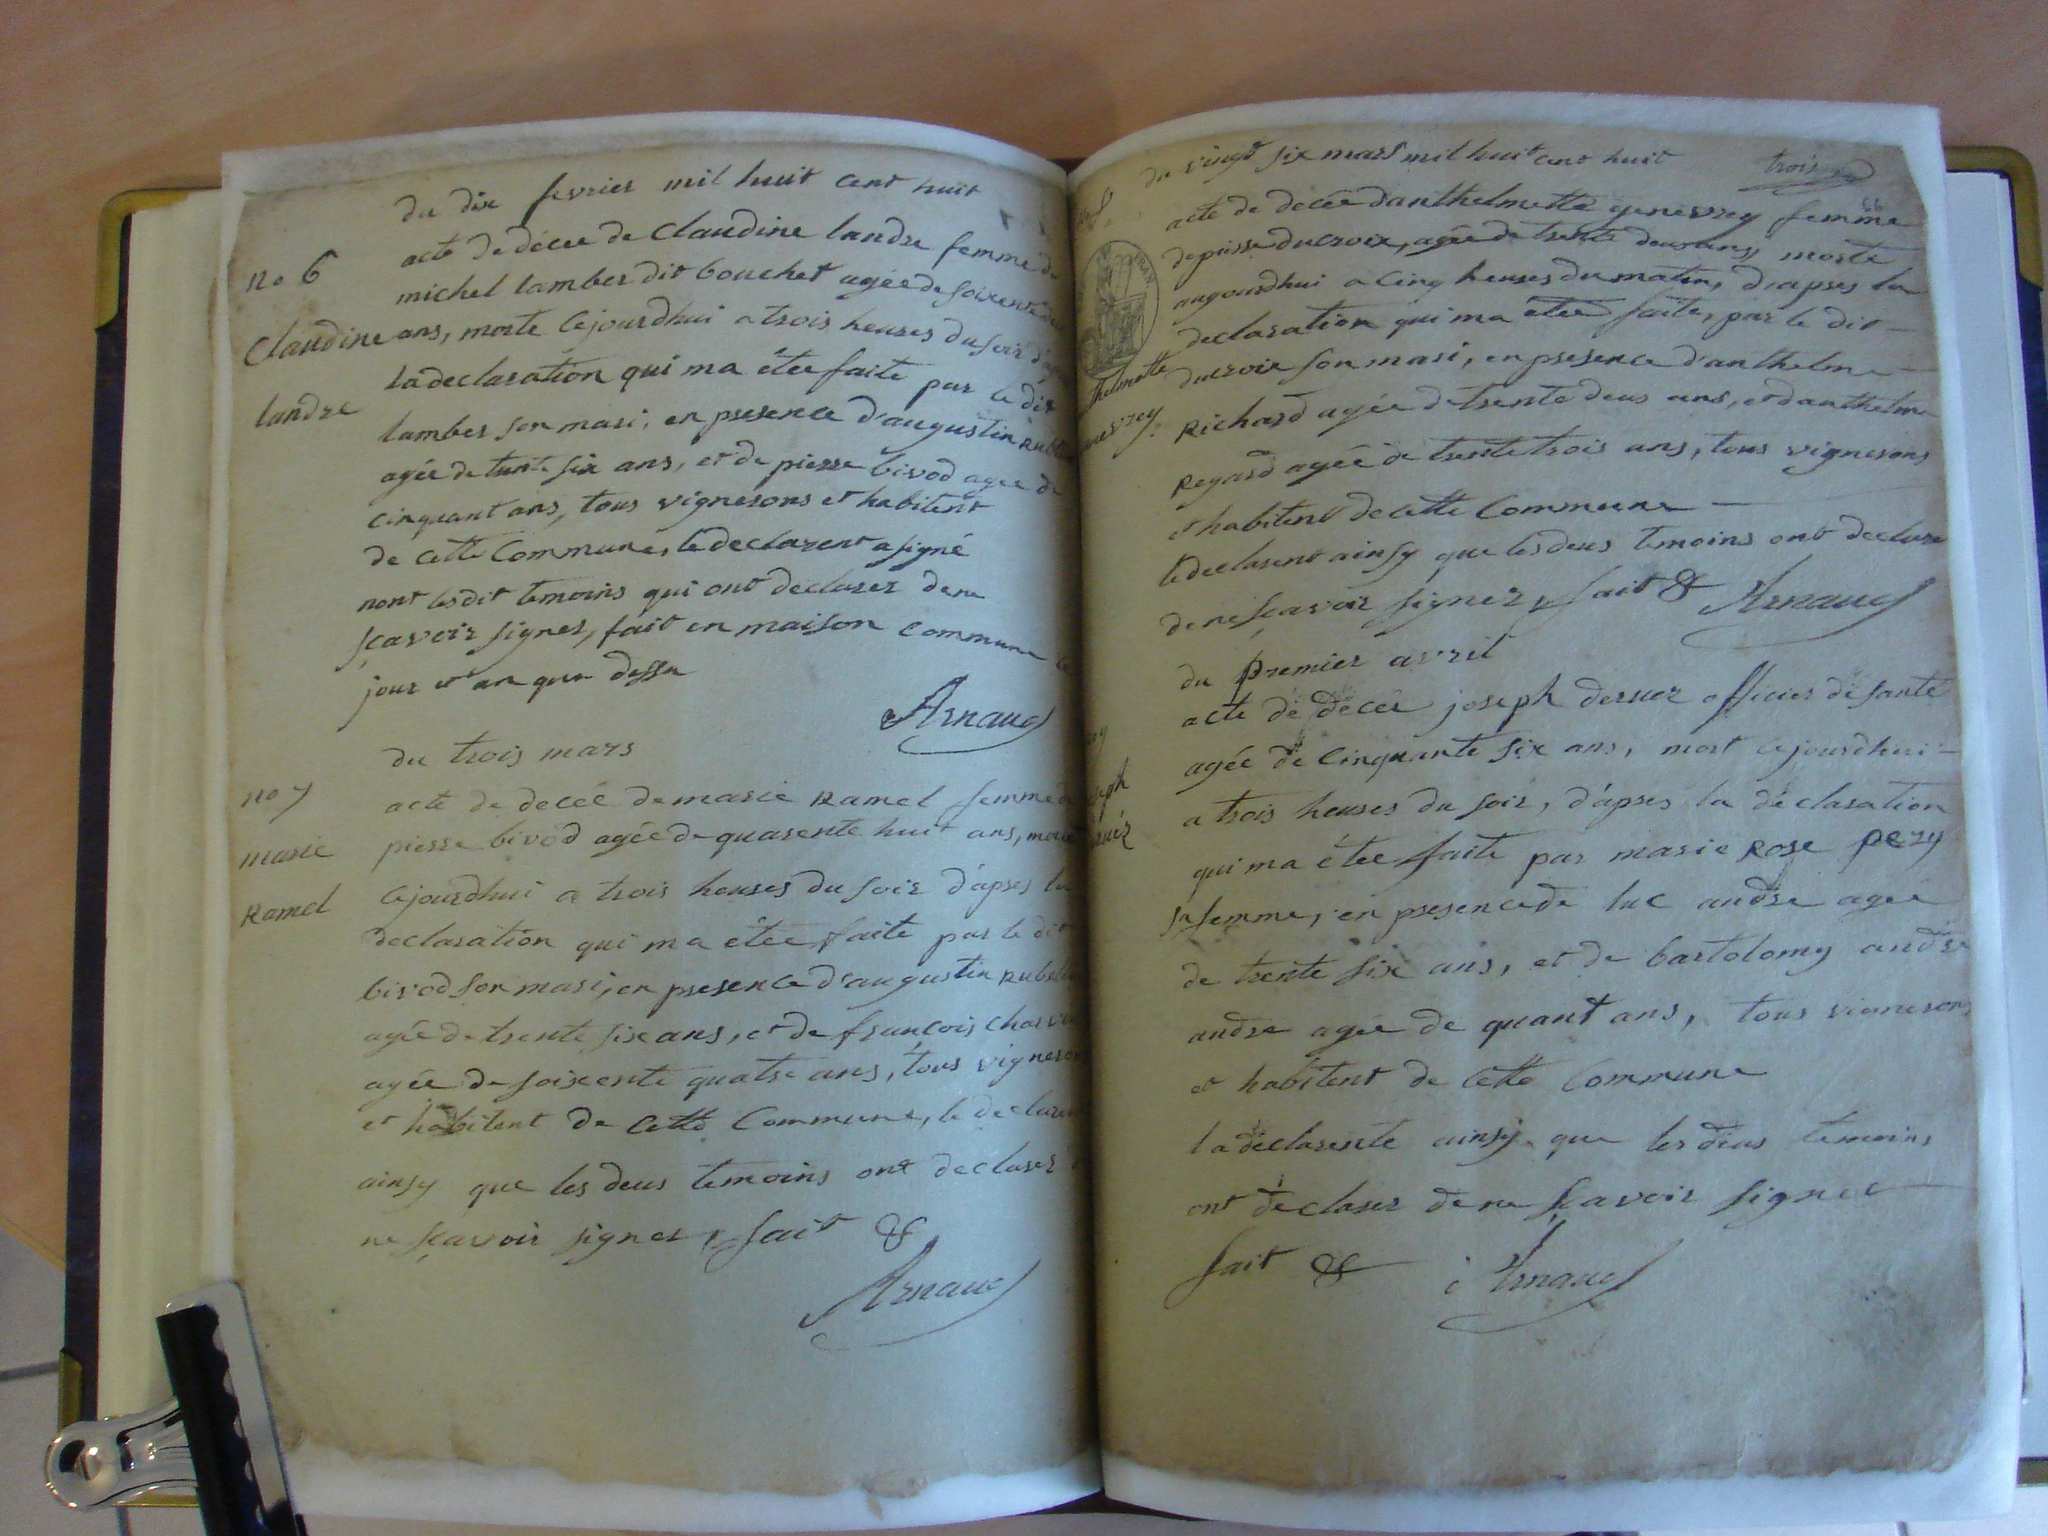 du dix fevrier mil huit cent huit
no 6
acte de décée de Claudine landre femme de
michel lamber dit bouchet agée de soixente
Claudine
ans, morte cejourdhui a trois heures du soir d'après
la declaration qui ma étée faite par le dit
landre
lamber son mari, en presence d'augustin
agée de trente six ans, et de pierre bivod agée de
cinquant ans, tous vignerons et habitent
de cette Commune, le declarent a signé
nont lesdit temoins qui ont declarer de ne
sçavoir signer, fait en maison commune le
jour et an que dessu
Arnaud
du trois mars
no 7
acte de decée de marie Ramel femme de
marie
pierre bivod agée de quarente huit ans, morte
Ramel
cejourdhui a trois heures du soir d'apres la
declaration qui ma étée faite par le dit
bivod son mari, en presence d'augustin
agée de trente six ans, et de françois
agée de soixente quatre ans, tous vignerons
et habitent de cette Commune, le declarent
ainsy que les deus temoins ont declarer
ne sçavoir signer, fait &
Arnaud
du vingt six mars mil huit cent huit
trois
acte de décée danthelmette genevrey femme
de pierre ducroix, agée de trente deux ans, morte
aujourdhui a cinq heures du matin, d'apres la
declaration qui ma étée faite, par le dit
thelmette
ducroix son mari, en presence d'anthelme
nevrey
Richard agée de trente deus ans, et danthelme
Regard agée de trente trois ans, tous vignerons
et habitent de cette Commune
le declarent ainsy que les deus temoins ont declare
de ne sçavoir signer, fait & Arnaud
du premier avril
acte de décée joseph deruez officier de santé
agée de cinquante six ans, mort cejourdhui
seph
a trois heures du soir, d'apres la déclaration
ruéz
qui ma étée faite par marie rose pery
sa femme, en presence de luc andre agée
de trente six ans, et de bartolomy andre
andre agée de quant ans, tous vignerons
et habitent de cette Commune
la declarente ainsy que les deus temoins
ont declarer de ne sçavoir signer
fait & Arnaud